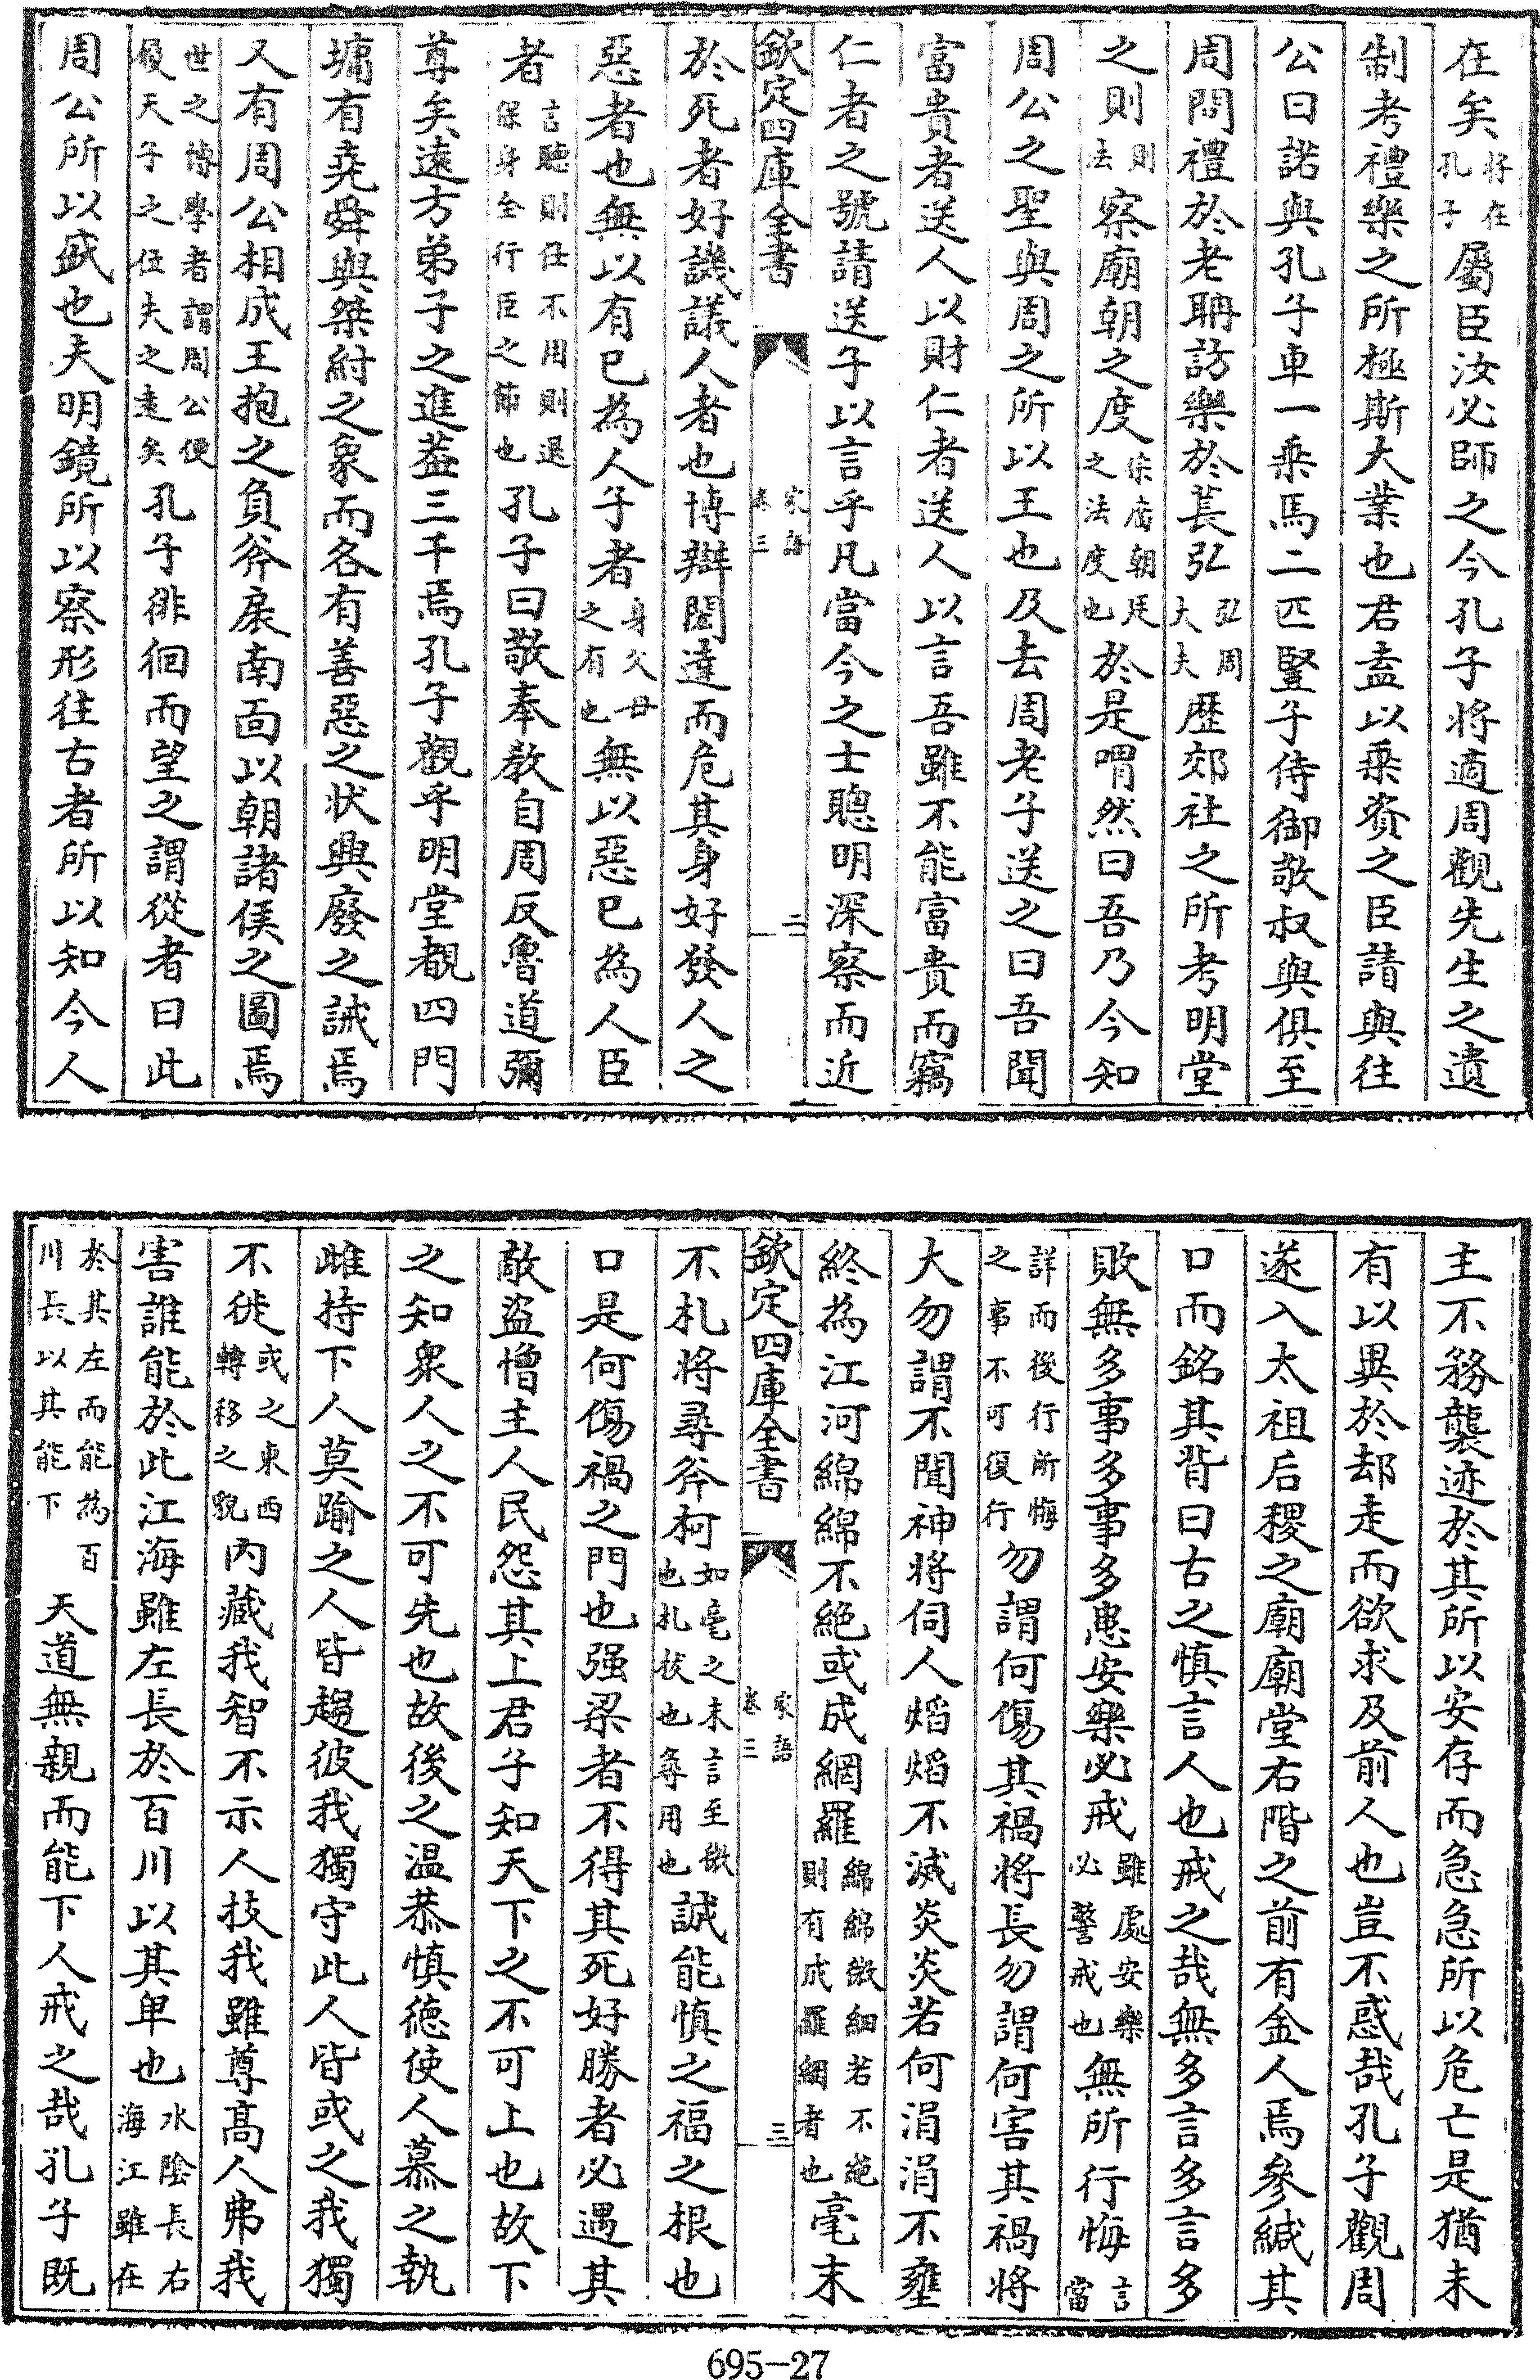 在矣將在孔子屬臣汝必師之今孔子將適周觀先生之遺
制考禮樂之所極斯大業也君盍以乗資之臣請與往
公曰諾與孔子車一乗馬二匹豎子侍御敬叔與俱至
周問禮於老聃訪樂於萇弘弘周大夫歴郊社之所考明堂
之則則法察廟朝之度宗廟朝廷之法度也於是喟然曰吾乃今知
周公之聖與周之所以王也及去周老子送之曰吾聞
富貴者送人以財仁者送人以言吾雖不能富貴而竊
仁者之號請送子以言乎凡當今之士聰明深察而近
欽定四庫全書 家語卷三 二
於死者好譏議人者也博辯閎達而危其身好發人之
惡者也無以有已為人子者身父母之有也無以惡已為人臣
者言聽則仕不用則退保身全行臣之節也孔子曰敬奉教自周反魯道彌
尊矣遠方弟子之進葢三千焉孔子觀乎明堂覩四門
墉有堯舜與桀紂之象而各有善惡之状興廢之誡焉
又有周公相成王抱之負斧扆南面以朝諸侯之圖焉
世之博學者謂周公便履天子之位失之逺矣孔子徘徊而望之謂從者曰此
周公所以盛也夫明鏡所以察形往古者所以知今人
主不務襲迹於其所以安存而急急所以危亡是猶未
有以異於却走而欲求及前人也豈不惑哉孔子觀周
遂入太祖后稷之廟廟堂右階之前有金人焉參緘其
口而銘其背曰古之慎言人也戒之哉無多言多言多
敗無多事多事多患安樂必戒雖處安樂必警戒也無所行悔言當
詳而後行所悔之事不可復行勿謂何傷其禍將長勿謂何害其禍將
大勿謂不聞神將伺人焰焰不滅炎炎若何涓涓不壅
終為江河綿綿不絶或成網羅綿綿微細若不絶則有成羅網者也毫末
欽定四庫全書 家語卷三 三
不札將尋斧柯如毫之末言至微也札拔也尋用也誠能慎之福之根也
口是何傷禍之門也强梁者不得其死好勝者必遇其
敵盜憎主人民怨其上君子知天下之不可上也故下
之知衆人之不可先也故後之温恭慎徳使人慕之執
雌持下人莫踰之人皆趨彼我獨守此人皆或之我獨
不徙或之東西轉移之貌内藏我智不示人技我雖尊髙人弗我
害誰能於此江海雖左長於百川以其卑也水隂長右海江雖在
於其左而能為百川長以其能下天道無親而能下人戒之哉孔子既
695-27